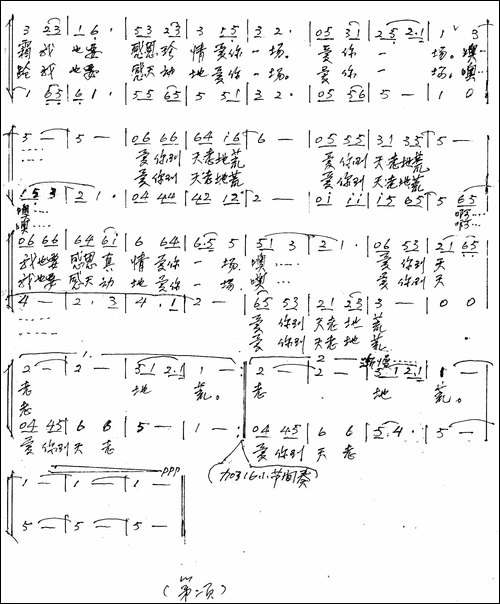 3 2 3 | 1 6 · | 5 3 2 3 | 3 5 5 | 3 2 · | 0 5 3 1 | 2 5 2 · 1 | 1 3
我 也要 感恩珍 情 爱你 一 场。 爱 你 一 场。 噢
我 也要 感天动 地 爱你 一 场。 爱 你 一 场。 噢
1 6 5 | 6 1 · | 5 5 6 5 | 5 5 1 | 3 2 · | 0 5 5 6 | 5 — | 1 0
5 — | 5 — | 0 6 6 6 | 6 4 1 6 | 6 — | 0 5 5 5 | 3 1 3 5 | 5 —
爱 你到 天老地荒 爱 你到 天老地荒
爱 你到 天老地荒 爱 你到 天老地荒
1 5 3 | 2 1 · | 0 4 4 4 | 4 2 1 2 | 2 — | 0 1 1 1 | 1 5 6 5 | 5 6 5
噢 啊
噢 啊
0 6 6 6 | 6 4 6 1 | 6 6 4 | 6 · 5 5 | 5 1 3 | 2 1 · | 0 6 5 3 | 2 1 6 5
我也要 感恩真 情 爱你 一 场 噢 爱 你到 天
我也要 感天动 地 爱你 一 场 噢 爱 你到 天
4 — | 2 · 3 | 4 · 1 | 2 — | 6 5 5 3 | 2 1 2 3 | 3 — | 0 0
爱 你到 天老 地 荒
爱 你到 天老 地 荒
1. 2.
2 — | 2 — | 5 1 2 · 1 | 1 — :| 2 — | 2 — | 5 1 2 · 1 | 1 —
老 地 荒。 老 地 荒。
老
0 4 4 5 | 6 6 | 5 — | 1 — :| 0 4 4 5 | 6 6 | 5 · 4 · | 5 —
爱 你到 天 老 爱 你到 天 老
(加16小节间奏)
ppp
1 — | 1 — | 1 —
5 — | 5 — | 5 —
(第二页)